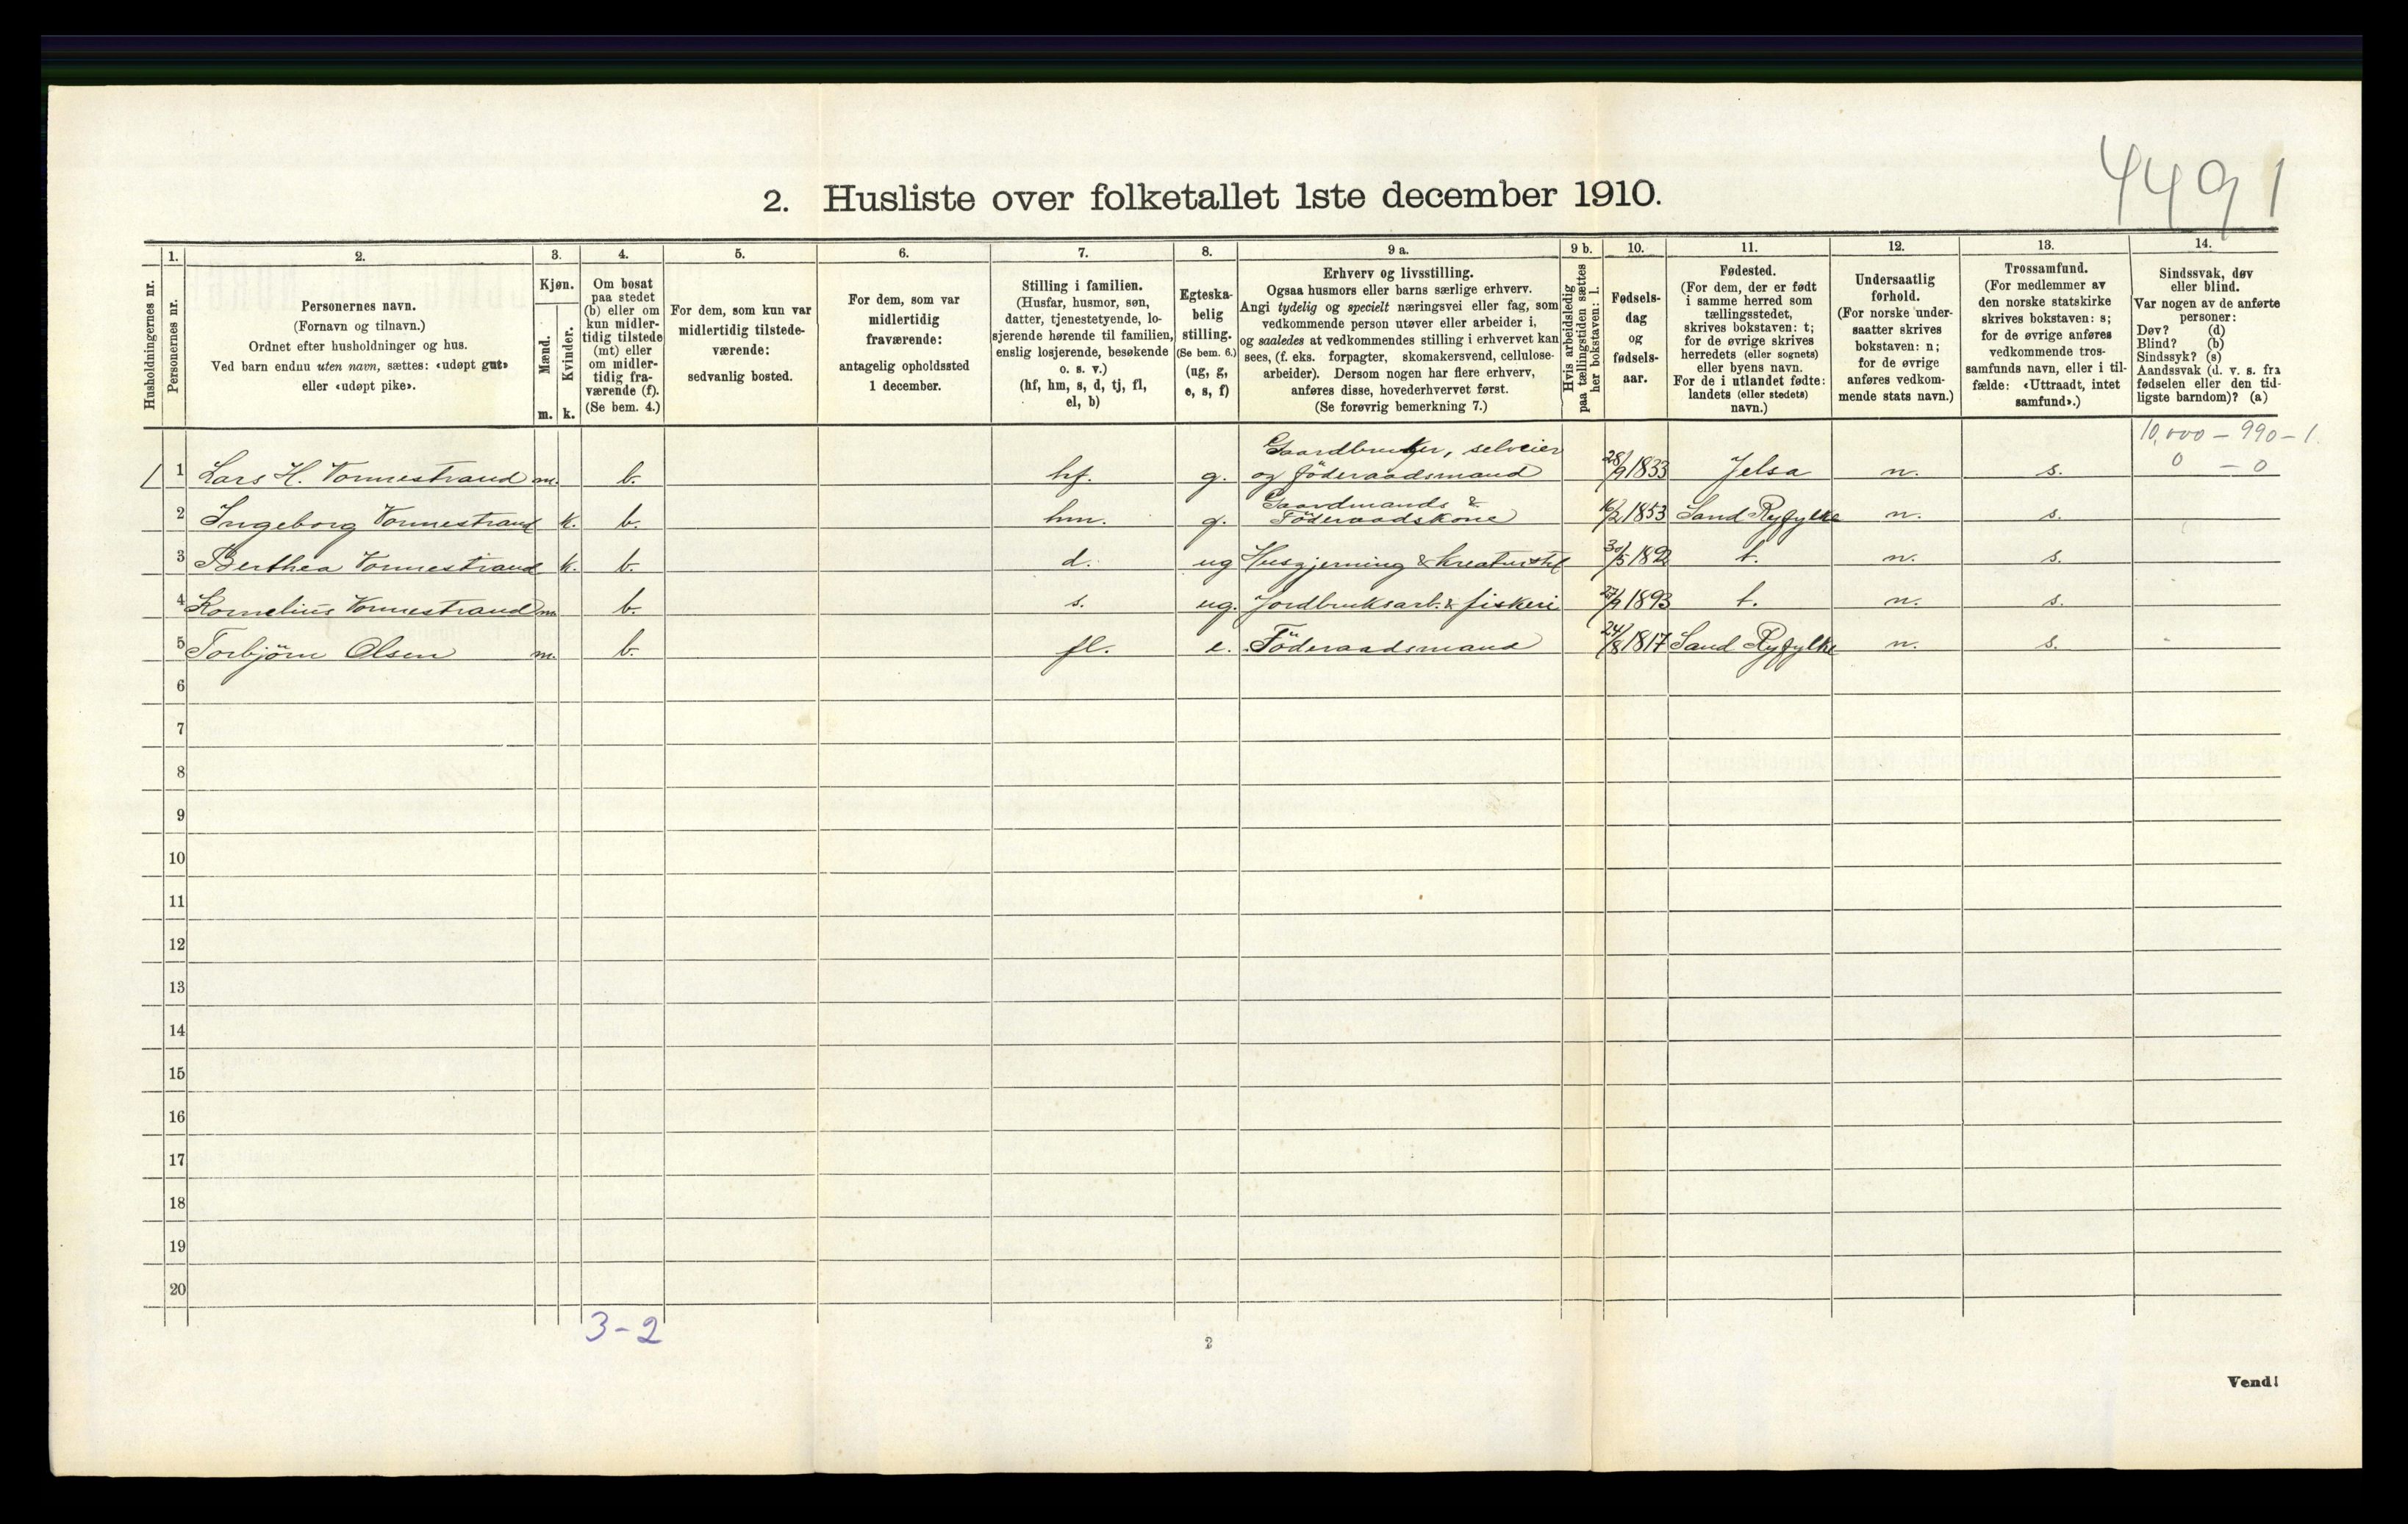 4491
2. Husliste over folketallet 1ste december 1910.
Husholdningernes nr.
1.
Personernes nr.
2.
Personernes navn.
(Fornavn og tilnavn.)
Ordnet efter husholdninger og hus.
Ved barn endnu uten navn, sættes: «udøpt gut»
eller «udøpt pike».
3.
Kjøn.
Mænd.
Kvinder.
m.
k.
4.
Om bosat
paa stedet
(b) eller om
kun midler-
tidig tilstede
(mt) eller
om midler-
tidig fra-
værende (f).
(Se bem. 4.)
5.
For dem, som kun var
midlertidig tilstede-
værende:
sedvanlig bosted.
6.
For dem, som var
midlertidig
fraværende:
antagelig opholdssted
1 december.
7.
Stilling i familien.
(Husfar, husmor, søn,
datter, tjenestetyende, lo-
sjerende hørende til familien,
enslig losjerende, besøkende
o. s. v.)
(hf, hm, s, d, tj, fl,
el, b)
8.
Egteska-
belig
stilling.
(Se bem. 6.)
(ug, g,
e, s, f)
9 a.
Erhverv og livsstilling.
Ogsaa husmors eller barns særlige erhverv.
Angi tydelig og specielt næringsvei eller fag, som
vedkommende person utøver eller arbeider i,
og saaledes at vedkommendes stilling i erhvervet kan
sees, (f. eks. forpagter, skomakersvend, cellulose-
arbeider). Dersom nogen har flere erhverv,
anføres disse, hovederhvervet først.
(Se forøvrig bemerkning 7.)
9 b.
Hvis arbeidsledig
paa tællingstiden sættes
her bokstaven: l.
10.
Fødsels-
dag
og
fødsels-
aar.
11.
Fødested.
(For dem, der er født
i samme herred som
tællingsstedet,
skrives bokstaven: t;
for de øvrige skrives
herredets (eller sognets)
eller byens navn.
For de i utlandet fødte:
landets (eller stedets)
navn.)
12.
Undersaatlig
forhold.
(For norske under-
saatter skrives
bokstaven: n;
for de øvrige
anføres vedkom-
mende stats navn.)
13.
Trossamfund.
(For medlemmer av
den norske statskirke
skrives bokstaven: s;
for de øvrige anføres
vedkommende tros-
samfunds navn, eller i til-
fælde: «Uttraadt, intet
samfund».)
14.
Sindssvak, døv
eller blind.
Var nogen av de anførte
personer:
Døv? (d)
Blind? (b)
Sindssyk? (s)
Aandssvak (d. v. s. fra
fødselen eller den tid-
ligste barndom)? (a)
10,000 – 990 – 1.
0 – 0
Gaardbruker, selveier
1 1 Lars H. Vonnestrand m. b. hf. g. og föderaadsmand 28/9 1833 Jelsa n. s.
Gaardmands &
2 Ingeborg Vonnestrand k. b. hm. g. Föderaadskone 16/2 1853 Sand Ryfylke n. s.
3 Berthea Vonnestrand k. b. d. ug Husgjerning & Kreaturstel 30/5 1892 t. n. s.
4 Kornelius Vonnestrand m. b. s. ug. Jordbruksarb. & fiskeri 27/9 1893 t. n. s.
5 Torbjörn Olsen m. b. fl. e. Föderaadsmand 24/8 1817 Sand Ryfylke n. s.
6
7
8
9
10
11
12
13
14
15
16
17
18
19
20
3-2
2
Vend!